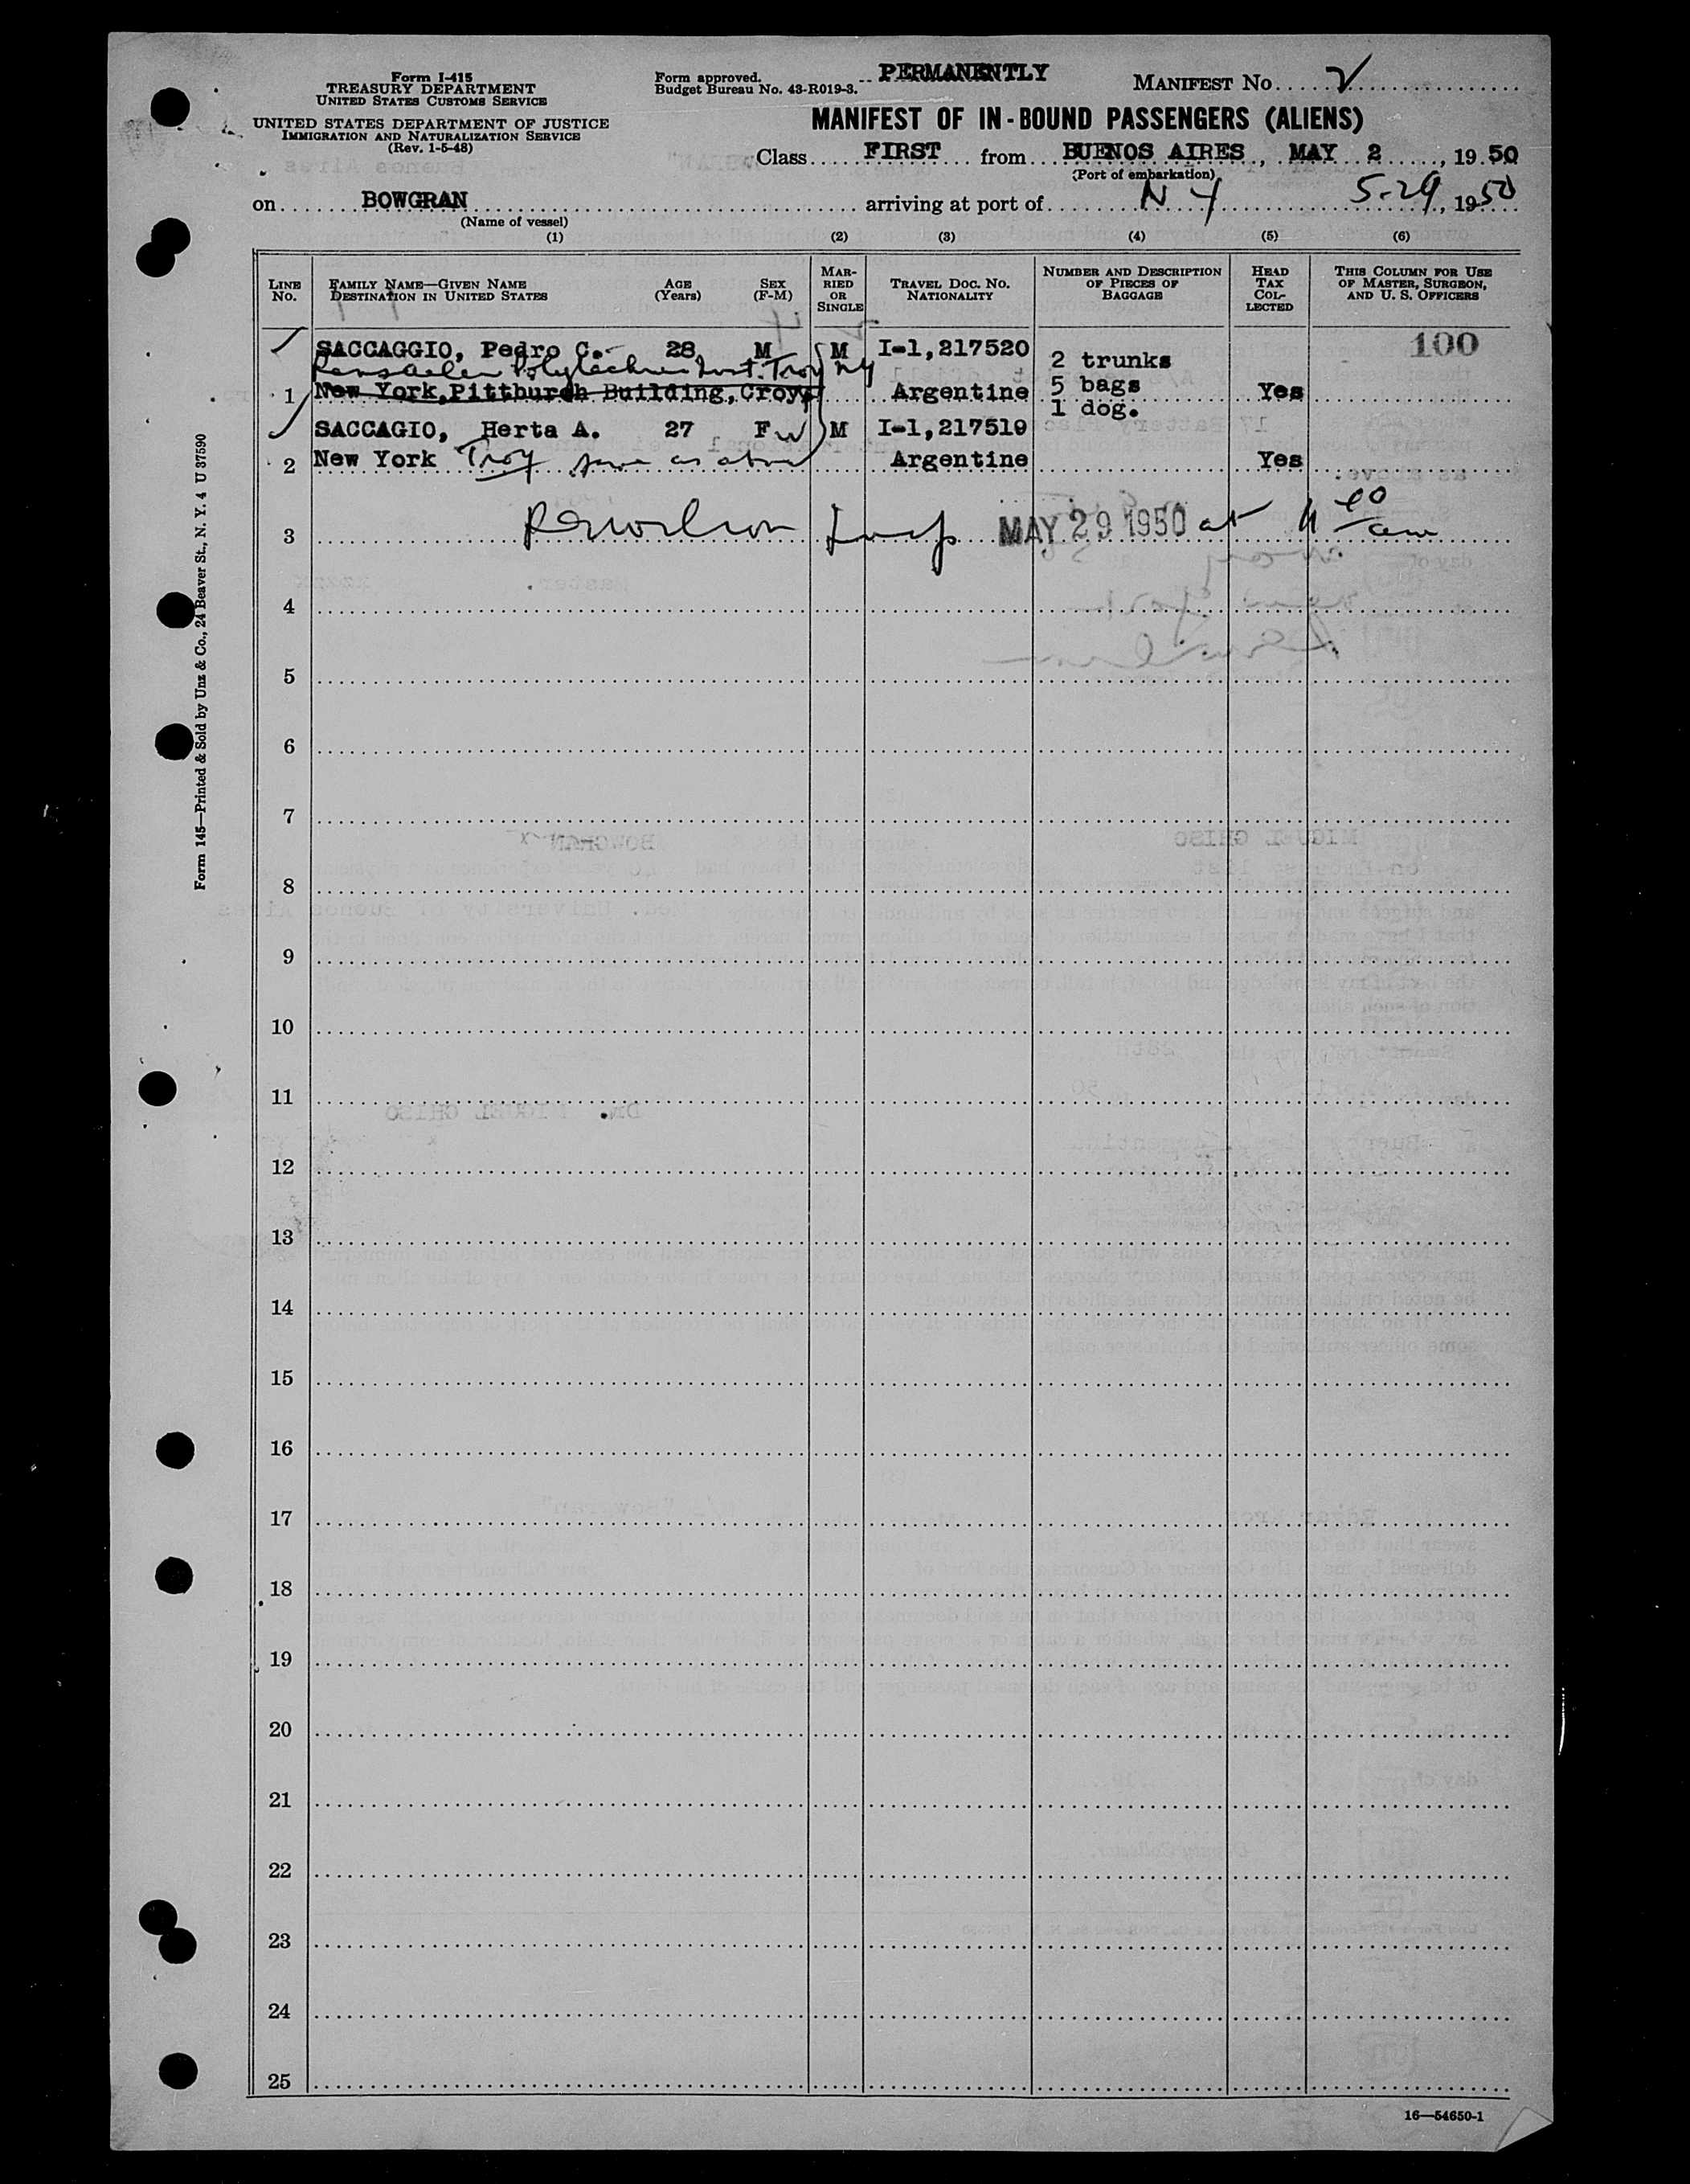 Form I-415
TREASURY DEPARTMENT
UNITED STATES CUSTOMS SERVICE
UNITED STATES DEPARTMENT OF JUSTICE
IMMIGRATION AND NATURALIZATION SERVICE
(Rev. 1-5-48)
Form approved.
Budget Bureau No. 43-R019-3.
PERMANENTLY
MANIFEST NO. 2
MANIFEST OF IN-BOUND PASSENGERS (ALIENS)
Class FIRST from BUENOS AIRES, MAY 2, 19 50
(Port of embarkation)
on BOWGRAN arriving at port of N Y 5-29, 19 50
(Name of vessel)
(1) (2) (3) (4) (5) (6)
LINE NO.
FAMILY NAME—GIVEN NAME
DESTINATION IN UNITED STATES
AGE (Years)
SEX (F-M)
MARRIED OR SINGLE
TRAVEL DOC. NO.
NATIONALITY
NUMBER AND DESCRIPTION OF PIECES OF BAGGAGE
HEAD TAX COLLECTED
THIS COLUMN FOR USE OF MASTER, SURGEON, AND U. S. OFFICERS
SACCAGGIO, Pedro C. 28 M M I-1,217520 2 trunks 100
Rensselaer Polytechnic Inst. Troy NY
1 New York, Pittburgh Building, Croy, Argentine 5 bags Yes
1 dog.
SACCAGIO, Herta A. 27 F W M I-1,217519
2 New York Troy same as above Argentine Yes
3 Insp MAY 29 1950 at 11 00 am
4
5
6
7
8
9
10
11
12
13
14
15
16
17
18
19
20
21
22
23
24
25
16—54650-1
Form 145—Printed & Sold by Unz & Co., 24 Beaver St., N. Y. 4 U 37590